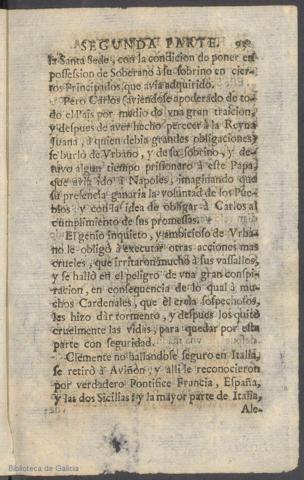 SEGUNDA PARTE.
la Santa Sede, con la condicion de poner en
possession de Soberano à su sobrino en cier-
tos Principados, que avia adquirido.
Pero Carlos aviendose apoderado de to-
do el Pais por medio de vna gran traicion,
y despues de aver hecho perecer à la Reyna
Juana, à quien debia grandes obligaciones,
se burlò de Vrbano, y de su sobrino, y de-
tuvo algun tiempo prisionero à este Papa,
que avia ido à Napoles, imaginando que
su presencia ganaria la voluntad de los Pue-
blos, y con la idea de obligar à Carlos al
cumplimiento de sus promessas.
El genio inquieto, y ambicioso de Vrba-
no le obligò à executar otras acciones mas
crueles, que irritaron mucho à sus vassallos,
y se hallò en el peligro de vna gran conspi-
racion, en consequencia de lo qual à mu-
chos Cardenales, que èl creia sospechosos,
les hizo dàr tormento, y despues los quitò
cruelmente las vidas, para quedar por esta
parte con seguridad.
Clemente no hallandose seguro en Italia,
se retirò à Aviñon, y alli le reconocieron
por verdadero Pontifice Francia, España,
y las dos Sicilias: y la mayor parte de Italia,
Ale-
Biblioteca de Galicia